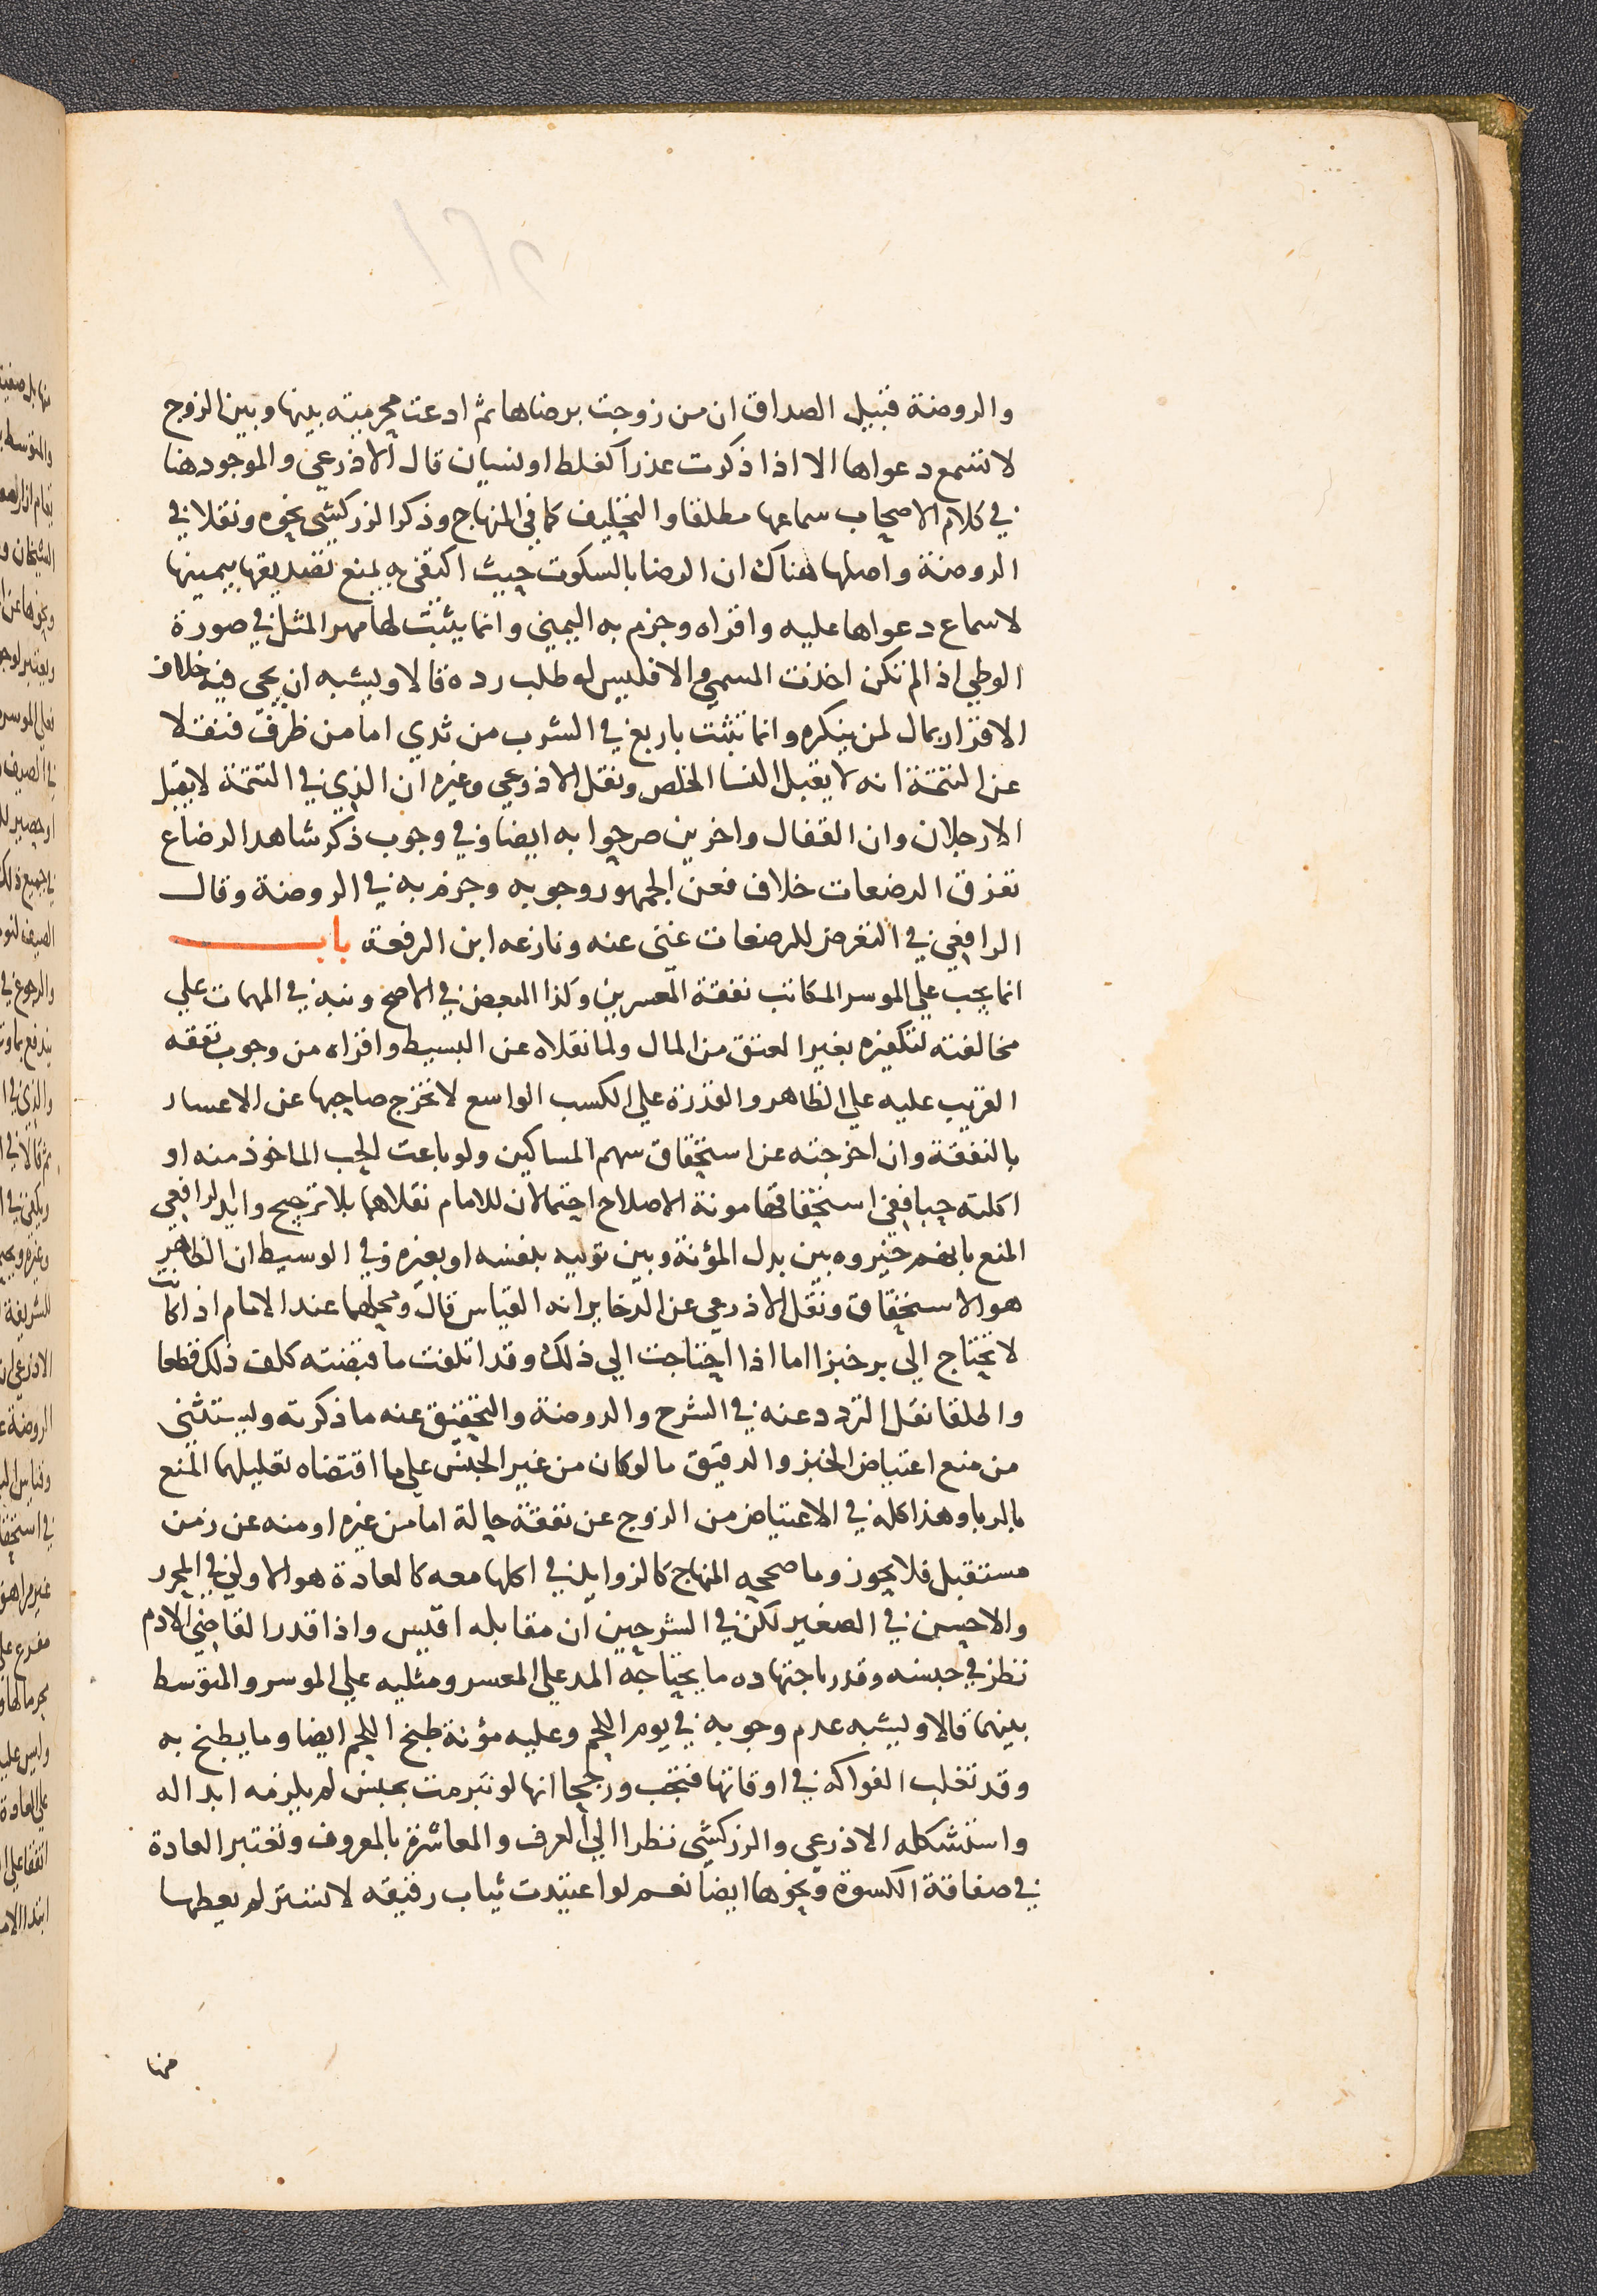 والروضة قبيل الصداق ان من زوجت برضاها ثم ادعت محرمية بينها وبين الزوج
لا تسمع دعواها الا اذا ذكرت عذرا كغلط او نسيان قال الاذرعي والموجود هنا
في كلام الاصحاب سماعها مطلقا والتحليف كما في المنهاج وذكر الزركشي نحوه ونقلا في
الروضة واصلها هناك ان الرضا بالسكوت حيث اكتفي به يمنع تصديقها بيمينها
لا سماع دعواها عليه واقراه وجزم به اليمني وانما يثبت لها مهر المثل في صورة
الوطي اذا لم تكن اخذت المسمي والا فليس له طلب رده قالا ويشبه ان يجي فيه خلاف
الاقرار بمال لمن ينكره وانما تثبت باربع في الشرب من ثدي اما من ظرف فنقلا
عن التتمة انه لا يقبل النسا الخلص ونقل الاذرعي وغيره ان الذي في التتمة لا يقبل
الا رجلان وان القفال واخرين صرحوا به ايضا وفي وجوب ذكر شاهد الرضاع
تفرق الرضعات خلاف فعن الجمهور وجوبه وجزم به في الروضة وقال
الرافعي في التعرض للرضعات غني عنه ونازعه ابن الرفعة باب
انما يجب علي الموسر المكاتب نفقة المعسرين وكذا المبعض في الاصح ونبه في المهمات علي
مخالفته لتكفيره بغير العتق من المال ولما نقلاه عن البسيط واقراه من وجوب نفقه
القريب عليه علي الظاهر والقدرة علي الكسب الواسع لا تخرج صاحبها عن الاعسار
بالنفقة وان اخرجته عن استحقاق سهم المساكين ولو باعت الحب الماخوذ منه او
اكلته حبا ففي استحقاقها مونة الاصلاح احتمالان للامام نقلاهما بلا ترجيح وايد الرافعي
المنع بانهم خيروه بين بدل المؤنة وبين توليه بنفسه او بغيره وفي الوسيط ان الظاهر
هو الاستحقاق ونقل الاذرعي عن الدخاير انه القياس قال ومحلهما عند الامام اذا كانت
لا تحتاج الي بر خبزا اما اذا احتاجت الي ذلك وقد اتلفت ما قبضته كلف ذلك قطعا
واطلقا نقل التردد عنه في الشرح والروضة والتحقيق عنه ما ذكرته وليستثني
من منع اعتياض الخبز والدقيق ما لو كان من غير الجنس علي ما اقتضاه تعليلهما المنع
بالربا وهذا كله في الاعتياض من الزوج عن نفقة حالة اما من غيره او منه عن زمن
مستقبل فلا يجوز وما صححه المنهاج كالزوايد في اكلها معه كالعادة هو الاولي في المحرر
والاحسن في الصغير لكن في الشرحين ان مقابله اقيس واذا قدر القاضي الادم
نظر في جنسه وقدر باجتهاده ما يحتاجه المد علي المعسر ومثليه علي الموسر والمتوسط
بينهما قالا ويشبه عدم وجوبه في يوم اللحم وعليه مؤنة طبخ اللحم ايضا وما يطبخ به
وقد تغلب الفواكه في اوقاتها فتجب ورجحا انها لو تبرمت بجنس لم يلزمه ابداله
واستشكله الاذرعي والزركشي نظرا الي العرف والمعاشرة بالمعروف وتعتبر العادة
في صفاقة الكسوة ونحوها ايضا نعم لو اعتيدت ثياب رفيقه لا تستر لم يعطها
منها